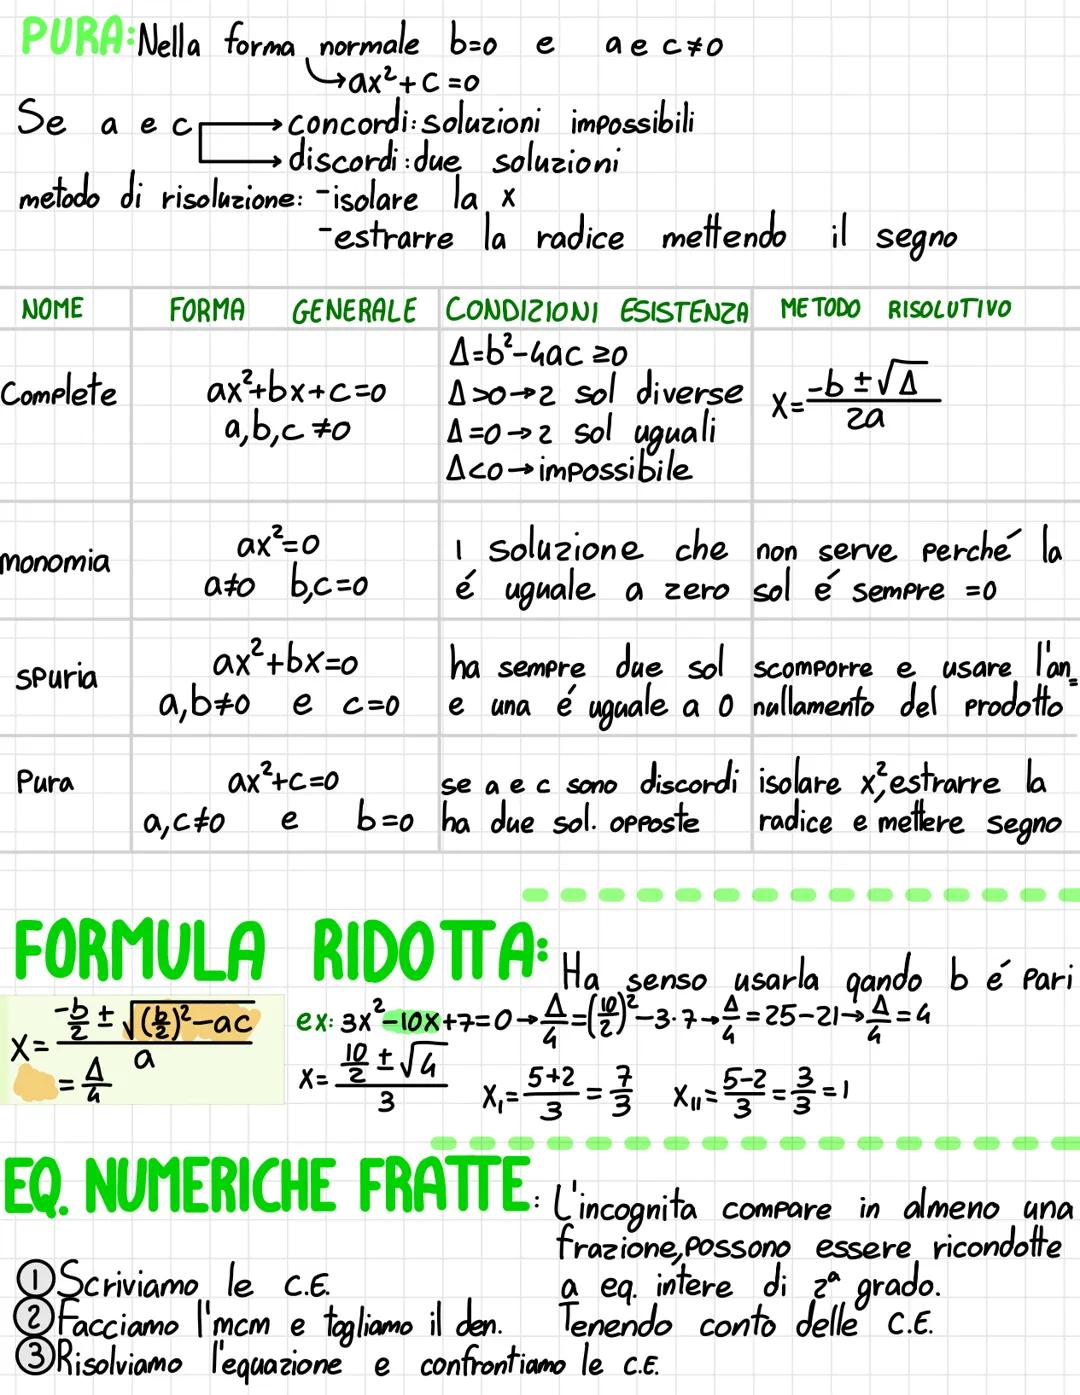 PURA: Nella forma normale b=0 e a e c≠0
↳ax²+c=0
Se a e c → concordi: soluzioni impossibili
→ discordi: due soluzioni
metodo di risoluzione: -isolare la x
-estrarre la radice mettendo il segno
NOME FORMA GENERALE CONDIZIONI ESISTENZA METODO RISOLUTIVO
Complete
ax²+bx+c=0
a,b,c ≠0
Δ=b²-4ac ≥0
Δ>0→2 sol diverse
Δ=0→2 sol uguali
Δ<0→impossibile
x=-b±√Δ/2a
monomia
ax²=0
a≠0 b,c=0
1 soluzione che
é uguale a zero
non serve perché la
sol é sempre =0
spuria
ax²+bx=0
a,b≠0 e c=0
ha sempre due sol
e una é uguale a 0
scomporre e usare l'an=
nullamento del prodotto
Pura
ax²+c=0
a,c≠0 e b=0
se a e c sono discordi
ha due sol. opposte
isolare x², estrarre la
radice e mettere segno
FORMULA RIDOTTA: Ha senso usarla qando b é pari
x=-b/2±√(b/2)²-ac/a
=Δ/4
ex: 3x²-10x+7=0→Δ/4=(10/2)²-3·7→Δ/4=25-21→Δ/4=4
x=10/2±√4/3 x₁=5+2/3=7/3 x₁₁=5-2/3=3/3=1
EQ. NUMERICHE FRATTE: L'incognita compare in almeno una
frazione, possono essere ricondotte
a eq. intere di 2ª grado.
Tenendo conto delle C.E.
① Scriviamo le C.E.
② Facciamo l'mcm e togliamo il den.
③ Risolviamo l'equazione e confrontiamo le C.E.